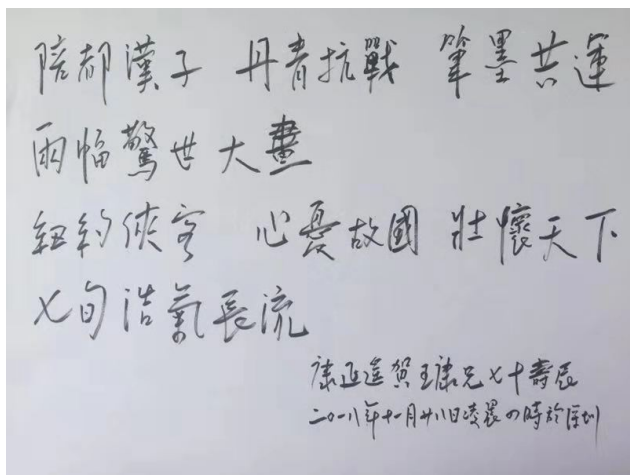 陪都漢子 丹青抗戰 筆墨共運
兩幅驚世大畫
紐約俠客 心憂故國 壯懷天下
七旬浩氣長流
康延遙賀王康兄七十壽辰
二〇一八年十一月廿八日凌晨四時於深圳